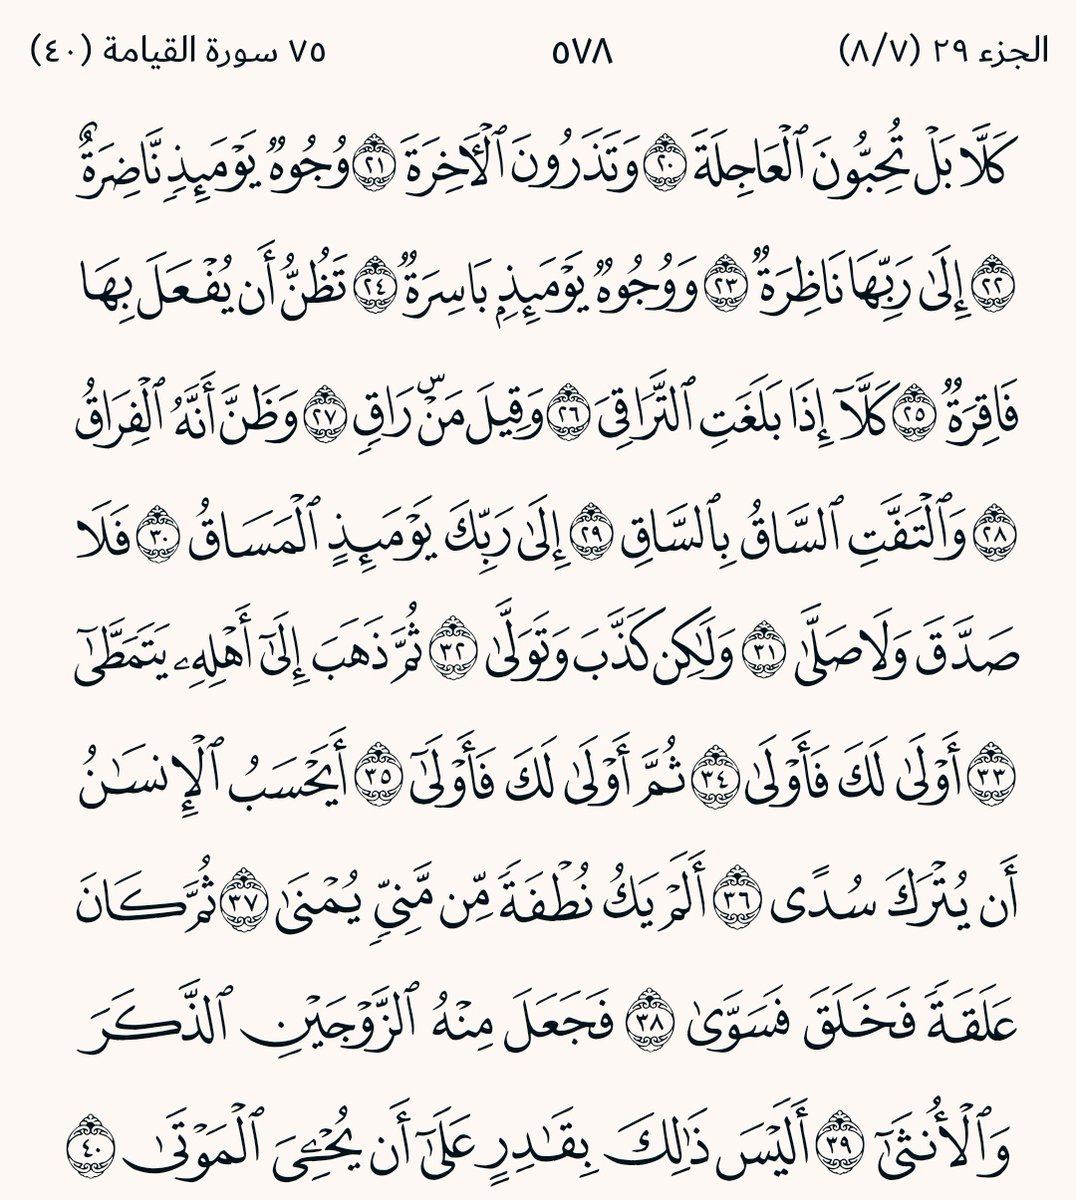 الجزء ٢٩ (٨/٧) ٥٧٨ ٧٥ سورة القيامة (٤٠)
كَلَّا بَلْ تُحِبُّونَ ٱلْعَاجِلَةَ ٢٠ وَتَذَرُونَ ٱلْأَخِرَةَ ٢١ وُجُوهٌ يَوْمَئِذٍ نَّاضِرَةٌ
٢٢ إِلَىٰ رَبِّهَا نَاظِرَةٌ ٢٣ وَوُجُوهٌ يَوْمَئِذٍۭ بَاسِرَةٌ ٢٤ تَظُنُّ أَن يُفْعَلَ بِهَا
فَاقِرَةٌ ٢٥ كَلَّآ إِذَا بَلَغَتِ ٱلتَّرَاقِىَ ٢٦ وَقِيلَ مَنْۜ رَاقٍ ٢٧ وَظَنَّ أَنَّهُ ٱلْفِرَاقُ
٢٨ وَٱلْتَفَّتِ ٱلسَّاقُ بِٱلسَّاقِ ٢٩ إِلَىٰ رَبِّكَ يَوْمَئِذٍ ٱلْمَسَاقُ ٣٠ فَلَا
صَدَّقَ وَلَا صَلَّىٰ ٣١ وَلَٰكِن كَذَّبَ وَتَوَلَّىٰ ٣٢ ثُمَّ ذَهَبَ إِلَىٰٓ أَهْلِهِۦ يَتَمَطَّىٰٓ
٣٣ أَوْلَىٰ لَكَ فَأَوْلَىٰ ٣٤ ثُمَّ أَوْلَىٰ لَكَ فَأَوْلَىٰٓ ٣٥ أَيَحْسَبُ ٱلْإِنسَٰنُ
أَن يُتْرَكَ سُدًى ٣٦ أَلَمْ يَكُ نُطْفَةً مِّن مَّنِىٍّ يُمْنَىٰ ٣٧ ثُمَّ كَانَ
عَلَقَةً فَخَلَقَ فَسَوَّىٰ ٣٨ فَجَعَلَ مِنْهُ ٱلزَّوْجَيْنِ ٱلذَّكَرَ
وَٱلْأُنثَىٰٓ ٣٩ أَلَيْسَ ذَٰلِكَ بِقَٰدِرٍ عَلَىٰٓ أَن يُحْـِۧىَ ٱلْمَوْتَىٰ ٤٠